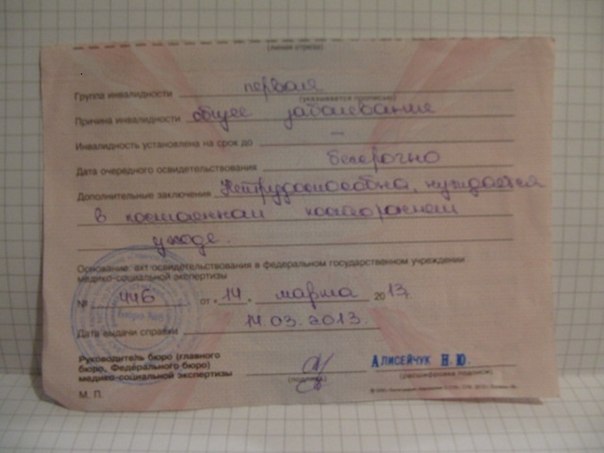 (линия отреза)
Группа инвалидности первая
(указывается прописью)
Причина инвалидности общее заболевание
Инвалидность установлена на срок до —
Дата очередного освидетельствования бессрочно
Дополнительные заключения Нетрудоспособна, нуждается
в постоянном постороннем
уходе.
Основание: акт освидетельствования в федеральном государственном учреждении
медико-социальной экспертизы
№ 446 от «14» марта 2013
Дата выдачи справки 14.03.2013.
Руководитель бюро (главного
бюро, Федерального бюро)
медико-социальной экспертизы
АЛИСЕЙЧУК Н.Ю.
(подпись) (расшифровка подписи)
М. П.